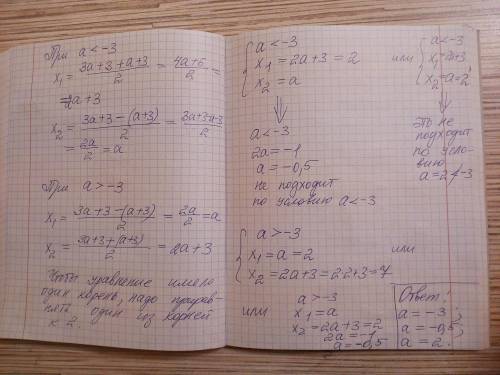 При a < -3
x₁ = (3a+3+a+3)/2 = (4a+6)/2 =
= 2a+3
x₂ = (3a+3-(a+3))/2 = (3a+3-a-3)/2
= 2a/2 = a
При a > -3
x₁ = (3a+3-(a+3))/2 = 2a/2 = a
x₂ = (3a+3+(a+3))/2 = 2a+3
Чтобы уравнение имело
один корень, надо приравнять
один из корней
к 2.
{ a < -3
x₁ = 2a+3 = 2
x₂ = a
⇓
a < -3
2a = -1
a = -0,5
не подходит
по условию a < -3
или
{ a < -3
x₁ = 2a+3
x₂ = a = 2
↓
Это не
подходит
по усло-
вию
a = 2 ≮ -3
{ a > -3
x₁ = a = 2
x₂ = 2a+3 = 2·2+3 = 7
или
или
a > -3
x₁ = a
x₂ = 2a+3 = 2
2a = -1
a = -0,5
Ответ:
a = -3;
a = -0,5;
a = 2.